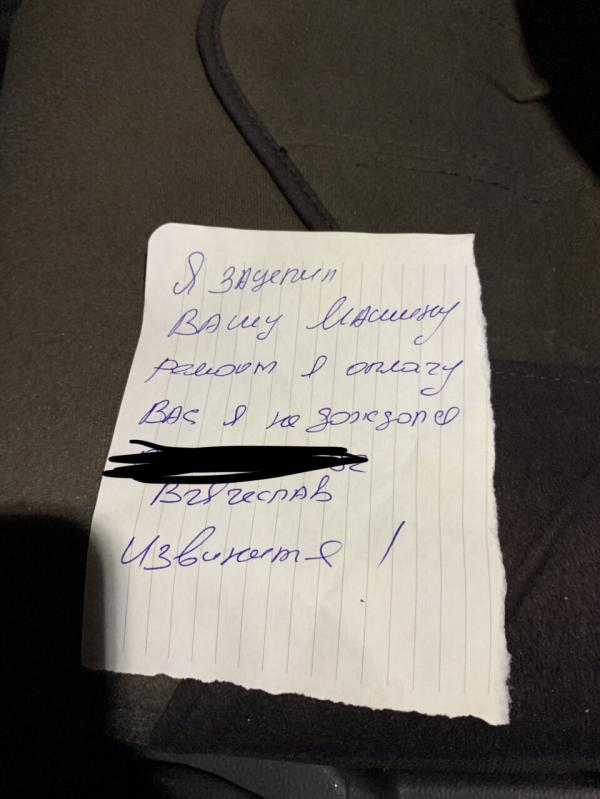 Я зацепил
Вашу машину
ремонт я оплачу
Вас я не дождался
Вячеслав
Извините!